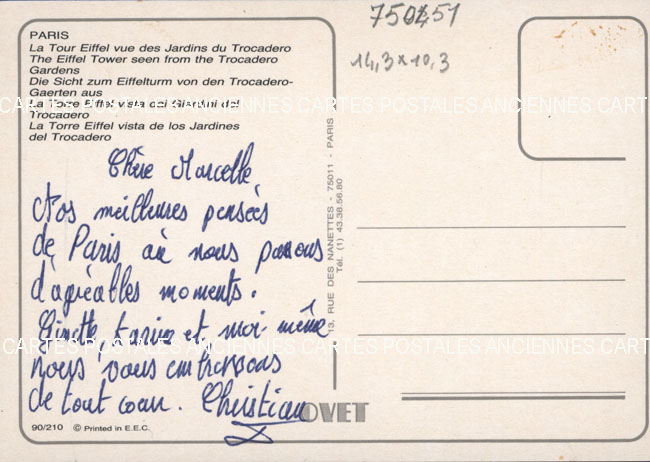 750451
14,3x10,3
PARIS
La Tour Eiffel vue des Jardins du Trocadero
The Eiffel Tower seen from the Trocadero
Gardens
Die Sicht zum Eiffelturm von den Trocadero-
Gaerten aus
La Torre Eiffel vista dei Giardini del
Trocadero
La Torre Eiffel vista de los Jardines
del Trocadero
CARTES POSTALES ANCIENNES CARTES POSTALES ANCIENNES CARTES
Chère Marcelle
Nos meilleures pensées
de Paris où nous passons
d'agréables moments.
Ginette et moi-même
nous vous embrassons
de tout coeur. Christian
CARTES POSTALES ANCIENNES CARTES POSTALES ANCIENNES CARTE
13, RUE DES NANETTES - 75011 - PARIS
Tél. (1) 43.38.56.80
OVET
90/210 © Printed in E.E.C.